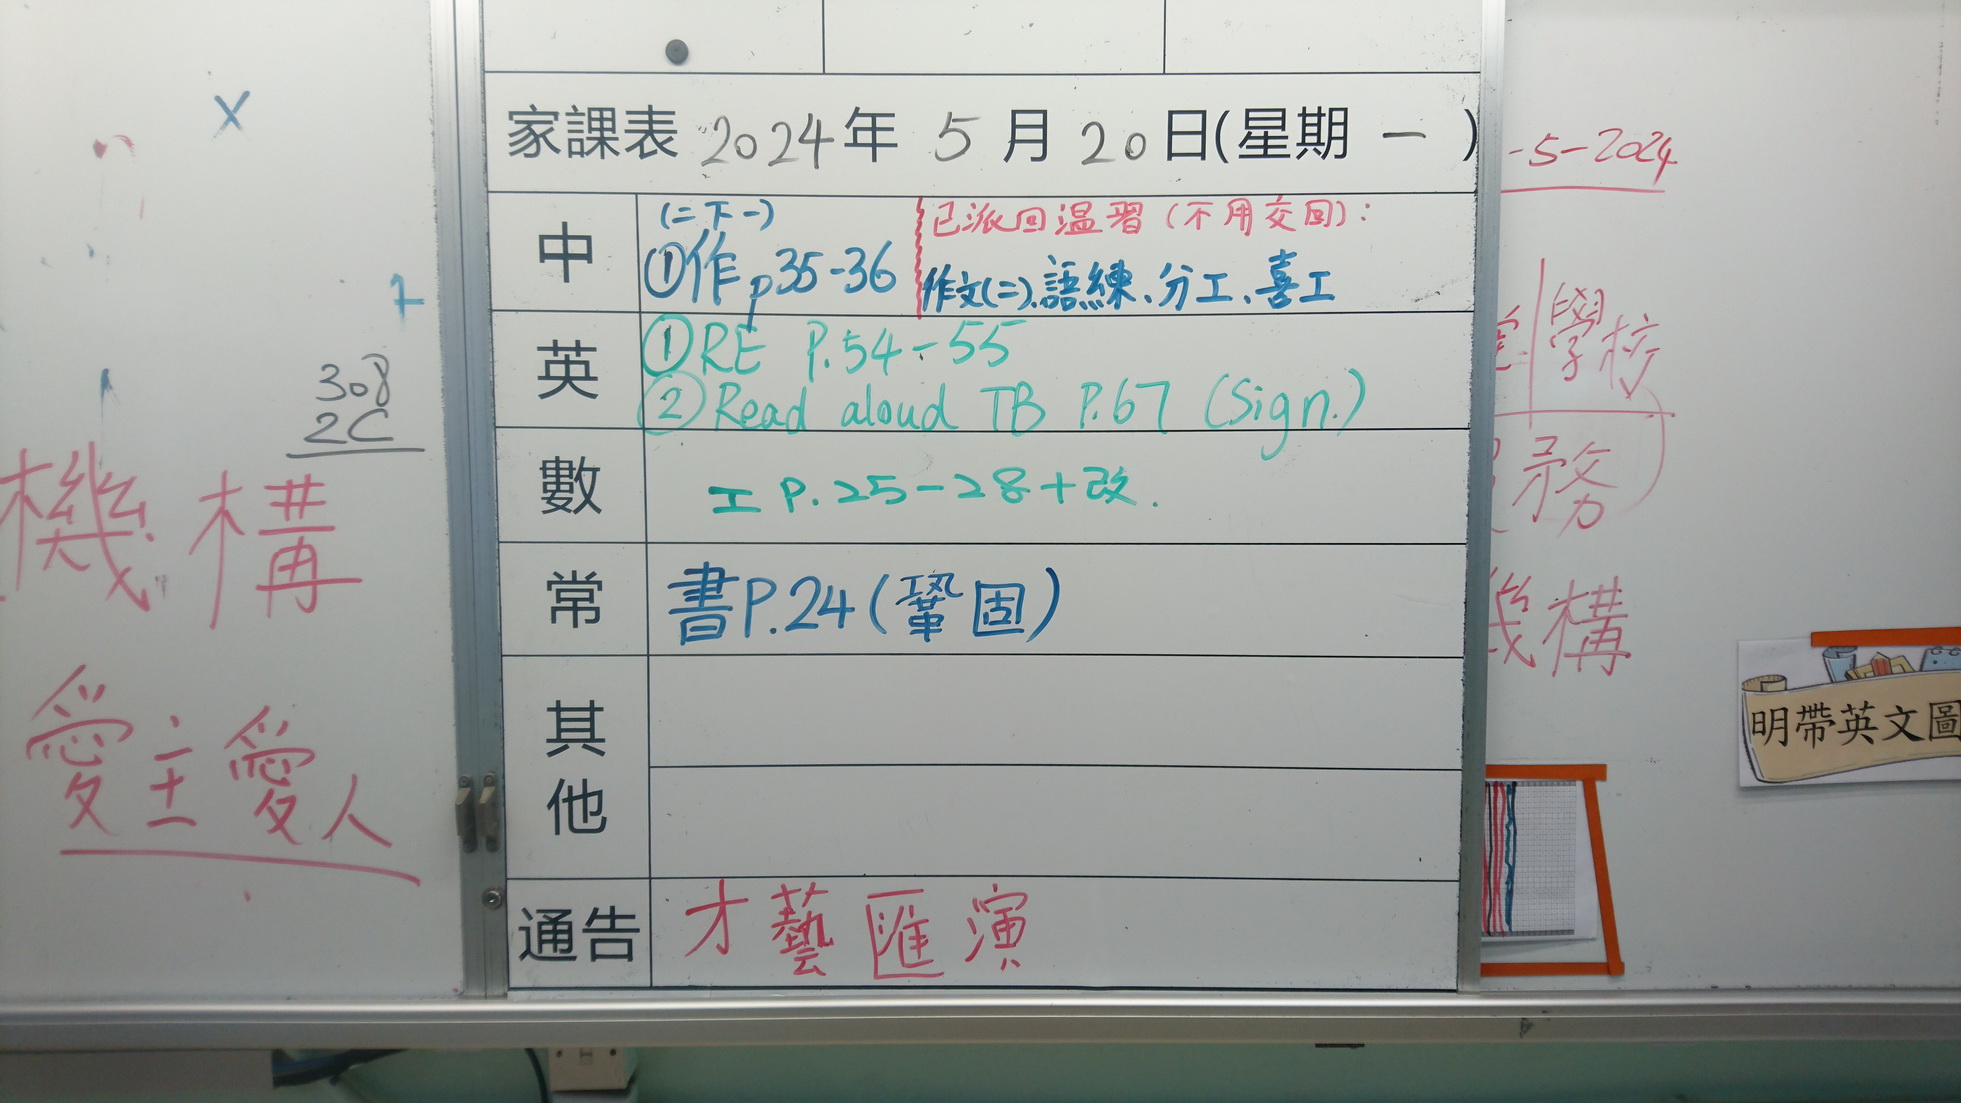 家課表 2024年 5 月 20 日(星期 一 )
中
(二下一)
①作 p35-36
已派回溫習(不用交回):
作文(二)、語練、分工、喜工
英
①RE P.54-55
②Read aloud TB P.67 (Sign.)
數
工 P.25-28+改.
常
書P.24(鞏固)
其他
通告
才藝匯演
308
2C
機構
愛主愛人
-5-2024
學校
務
機構
明帶英文圖